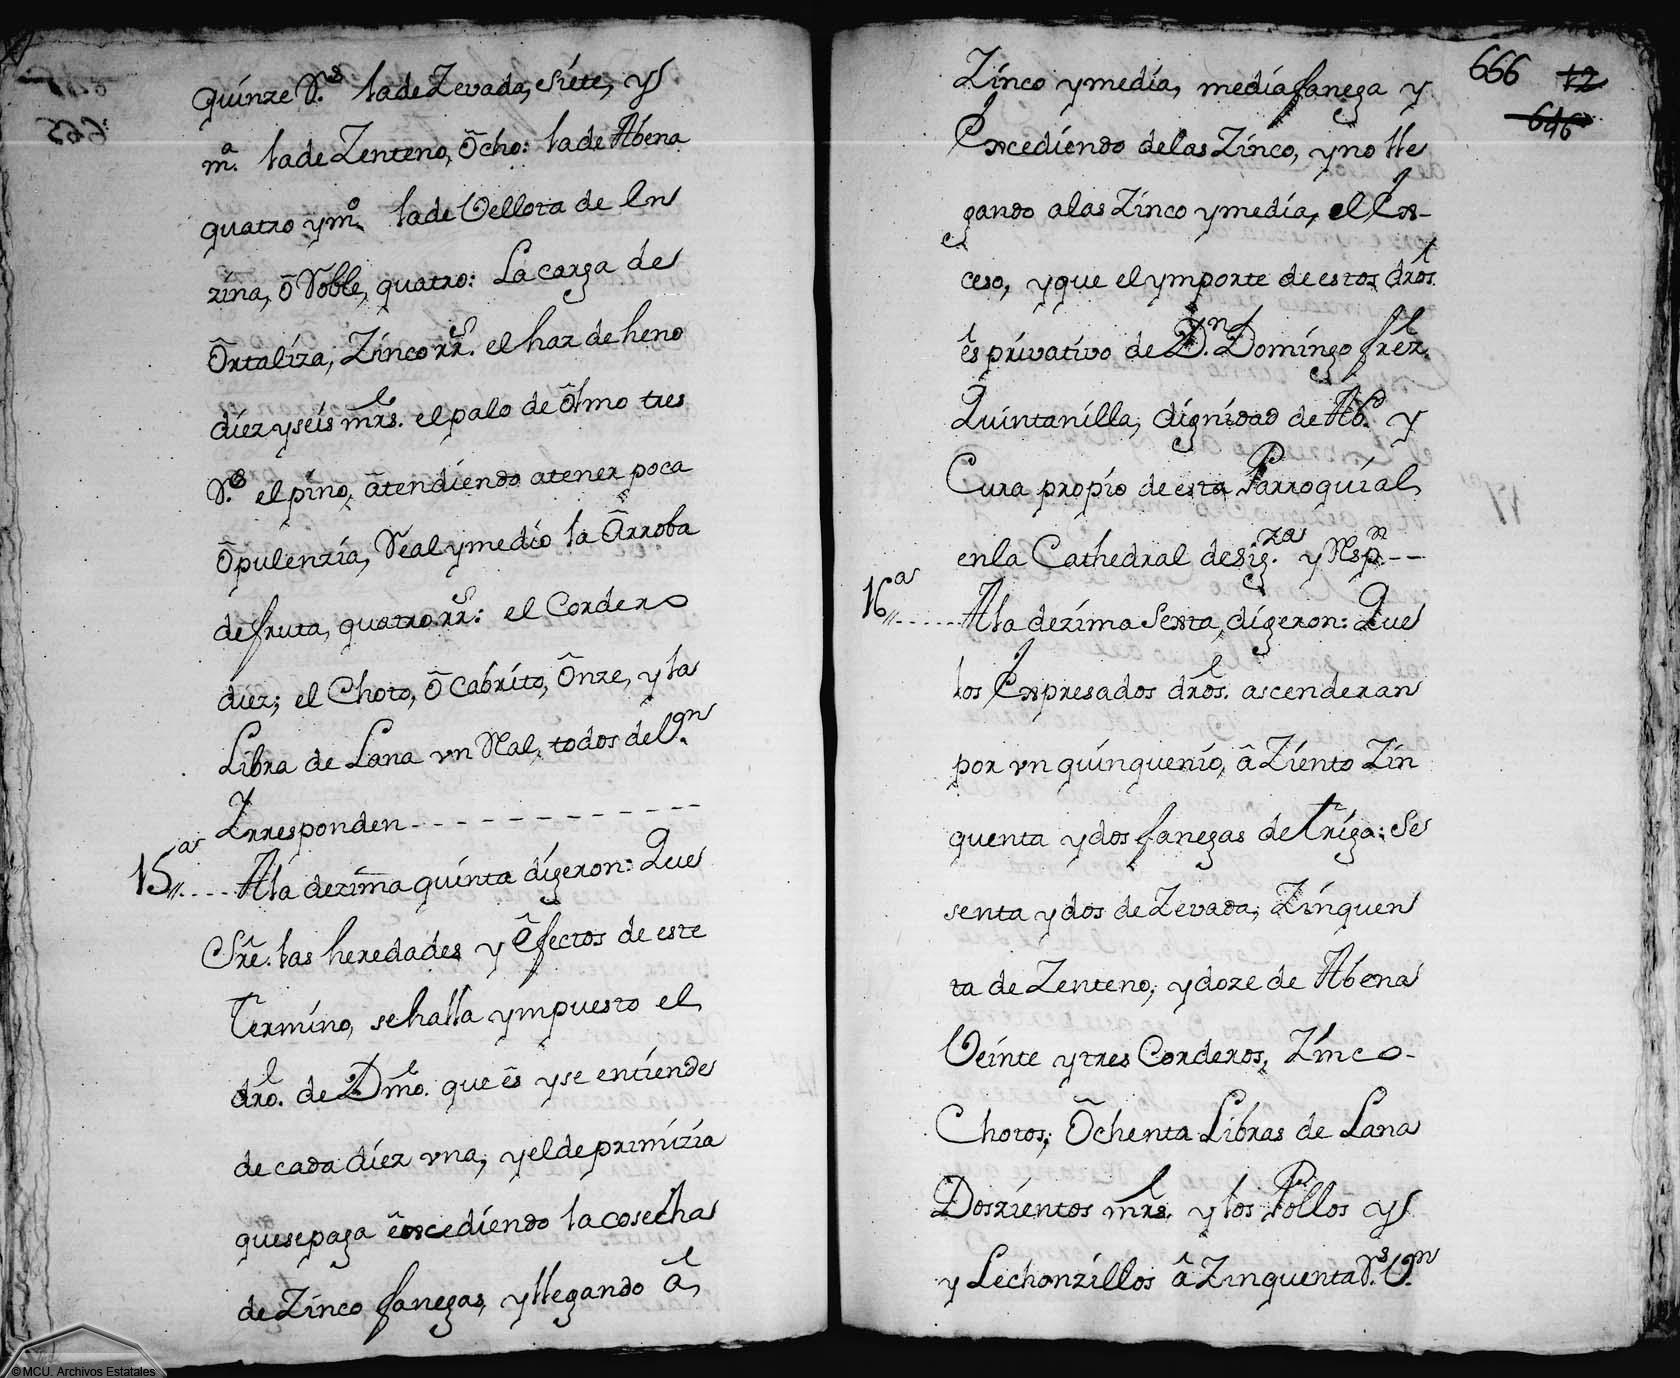 quinze R.s la de Zevada, siete, y
m.a la de Zenteno, ôcho: la de Abena
quatro y m.o la de Vellota de En
zina, ô Roble, quatro: La carga de
Ôrtaliza, Zinco rr.s el haz de heno
diez y seis mrs. el palo de ôlmo tres
R.s el pino, âtendiendo a tener poca
Ôpulenzia, Real y medio la Ârroba
de fruta, quatro rr.s: el Cordero
diez; el Choto, ô Cabrito, Ônze, y la
Libra de Lana vn Real, todos de V.on
Zrresponden
15.a,, Ala dezima quinta digeron: Que
Sre. las heredades y êfectos de este
Termino, se halla ympuesto el
dro. de Dmo. que ês y se entiende
de cada diez vna, y el de primizia
que se paga êxcediendo la cosecha
de Zinco fanegas, y llegando â
Zinco y media, media fanega y
Excediendo de las Zinco, y no lle
gando a las Zinco y media, el Ex-
ceso, y que el ymporte de estos dros.
ês privativo de D.n Domingo frez.
Quintanilla, dignidad de Ab.d y
Cura propio de esta Parroquial,
en la Cathedral de Sig.za y Resp.n
16.a,, Ala dezima sexta, digeron: Que
los Expresados dros. ascenderan
por vn quinquenio, â Ziento Zin
quenta y dos fanegas de Trigo; Se
senta y dos de Zevada; Zinquen
ta de Zenteno; y doze de Abena
Veinte y tres Corderos, Zinco-
Chotos; Ôchenta Libras de Lana
Doszientos mrs. y los Pollos y
y Lechonzillos â Zinquenta R.s V.on
666 12
646
©MCU. Archivos Estatales